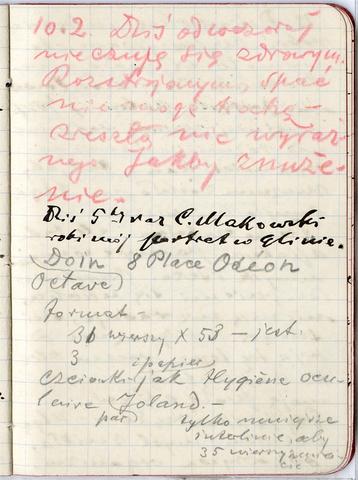 10.2. Dziś od wczoraj
nie czuję się zdrowym.
Rozstrojonym, spać
nie mogę trochę –
zresztą nic wyraź-
nego. Jakby znuże-
nie. –
Dziś 5ty raz C. Makowski
robi mój portret w glinie.
(Doin 8 Place Odéon
Octave)
format –
36 wierszy x 53 – jest.
3 i papier
czcionki jak Hygiène ocu-
laire (Joland. –
par) tylko mniejsze
interlinie, aby
35 wierszy